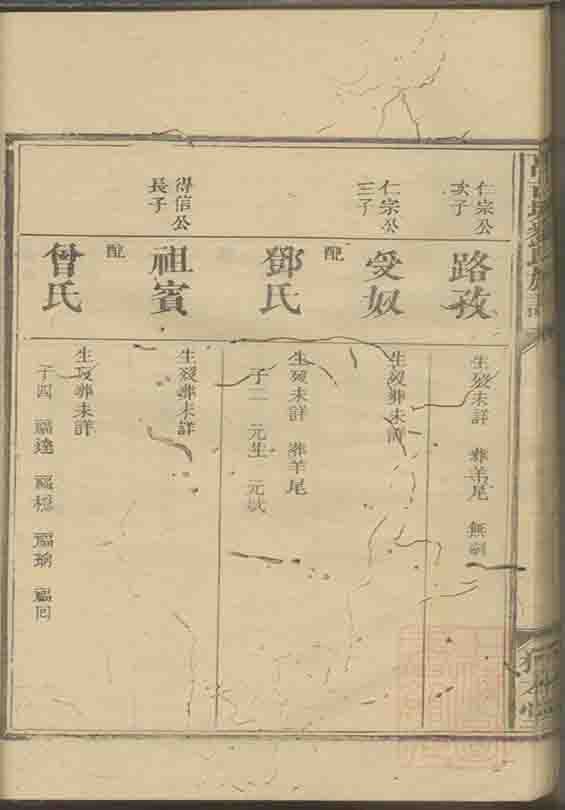 仁宗公
次子
路孜
生歿未詳 葬羊尾 無嗣
仁宗公
三子
受奴
生歿葬未詳
配
鄧氏
生歿未詳 葬羊尾
子二 元生 元
祖賓
得信公
長子
生歿葬未詳
配
曾氏
生歿葬未詳
子四 福達 福穩 福 福回